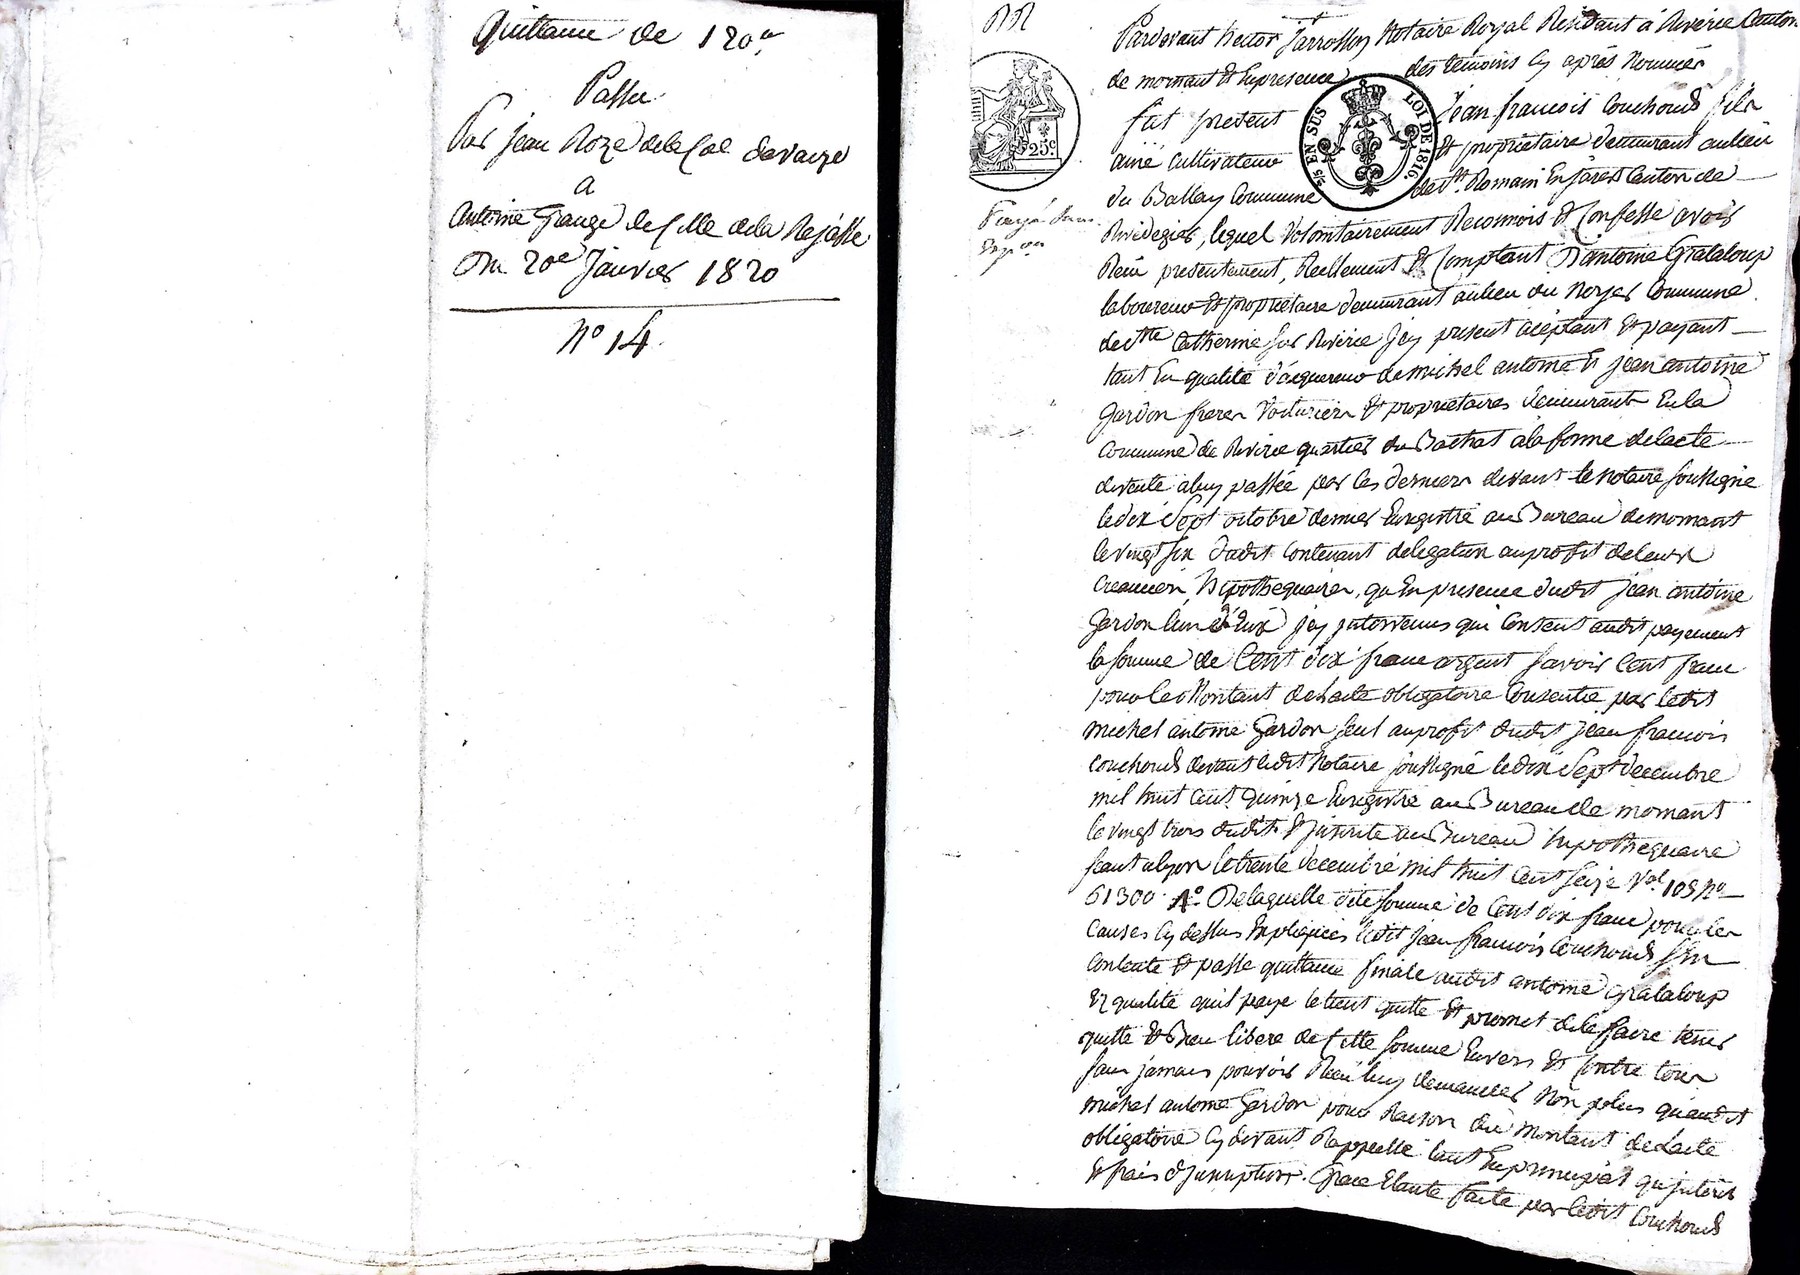 Quittance de 120#
Passée
Par jean Roze de la Cal
a
antoine Grange de celle de la Rejasse
Du 20e Janvier 1820
N° 14
Pardevant hector jarrosson Notaire Royal Residant à Riverie Canton
de mornant Et En presence des temoins cy après Nommés
25c
EN SUS
LOI DE 1816.
fut present Jean francois Couchoud fils
ainé cultivateur Et propriétaire demeurant au lieu
du Ballay Commune de St Romain En jarest Canton de
Rivedegier, lequel Volontairement Reconnois Et Confesse avoir
Reçu presentement, Reellement Et Comptant D'antoine Grataloup
laboureur Et propriétaire demeurant au lieu du Noyer Commune
de Ste Catherine sur Riverie jcy present acèptant Et payant
tant En qualité d'acquereur de michel antoine Et jean antoine
Gardon freres Voituriers Et propriétaires demeurant En la
Commune de Riverie quartier du Bachat a la forme de l'acte
de vente a luy passée par les derniers devant le Notaire soussigné
le dix sept octobre dernier Enregistré au Bureau de mornant
le vingt six dudit Contenant delegation au profit de leurs
Creanciers hipothequaires, qu En presence dudit jean antoine
Gardon l'un d'Eux jcy jntervenus qui Consent audit payement
la somme de Cent dix francs argent savoir Cent francs
pour le Montant de l'acte obligatoire Consentie par ledit
michel antoine Gardon seul au profit dudit jean francois
Couchoud devant ledit Notaire soussigné le dix sept decembre
mil huit cent quinze Enregistré au Bureau de mornant
le vingt trois dudit Et jnscrite au Bureau hypothequaire
seant a lyon le trente decembre mil huit cent seize Vol 105 No
61300 De laquelle dite somme de Cent dix francs pour les
Causes cy dessus Expliquées ledit jean francois Couchoud s'En
Contente Et passe quittance finale audit antoine Grataloup
Et qualité qu'il paye le tient quitte Et promet de le faire tenir
quitte Et Bien libere de Cette somme Envers Et Contre tous
sans jamais pouvoir Rien luy demander Non plus qu'audit
michel antoine Gardon pour Raison du Montant de l'acte
obligatoire cy devant Rappellé tant En principal qu'jnterets
Et frais d'jnscription. Grace Etant faite par ledit Couchoud